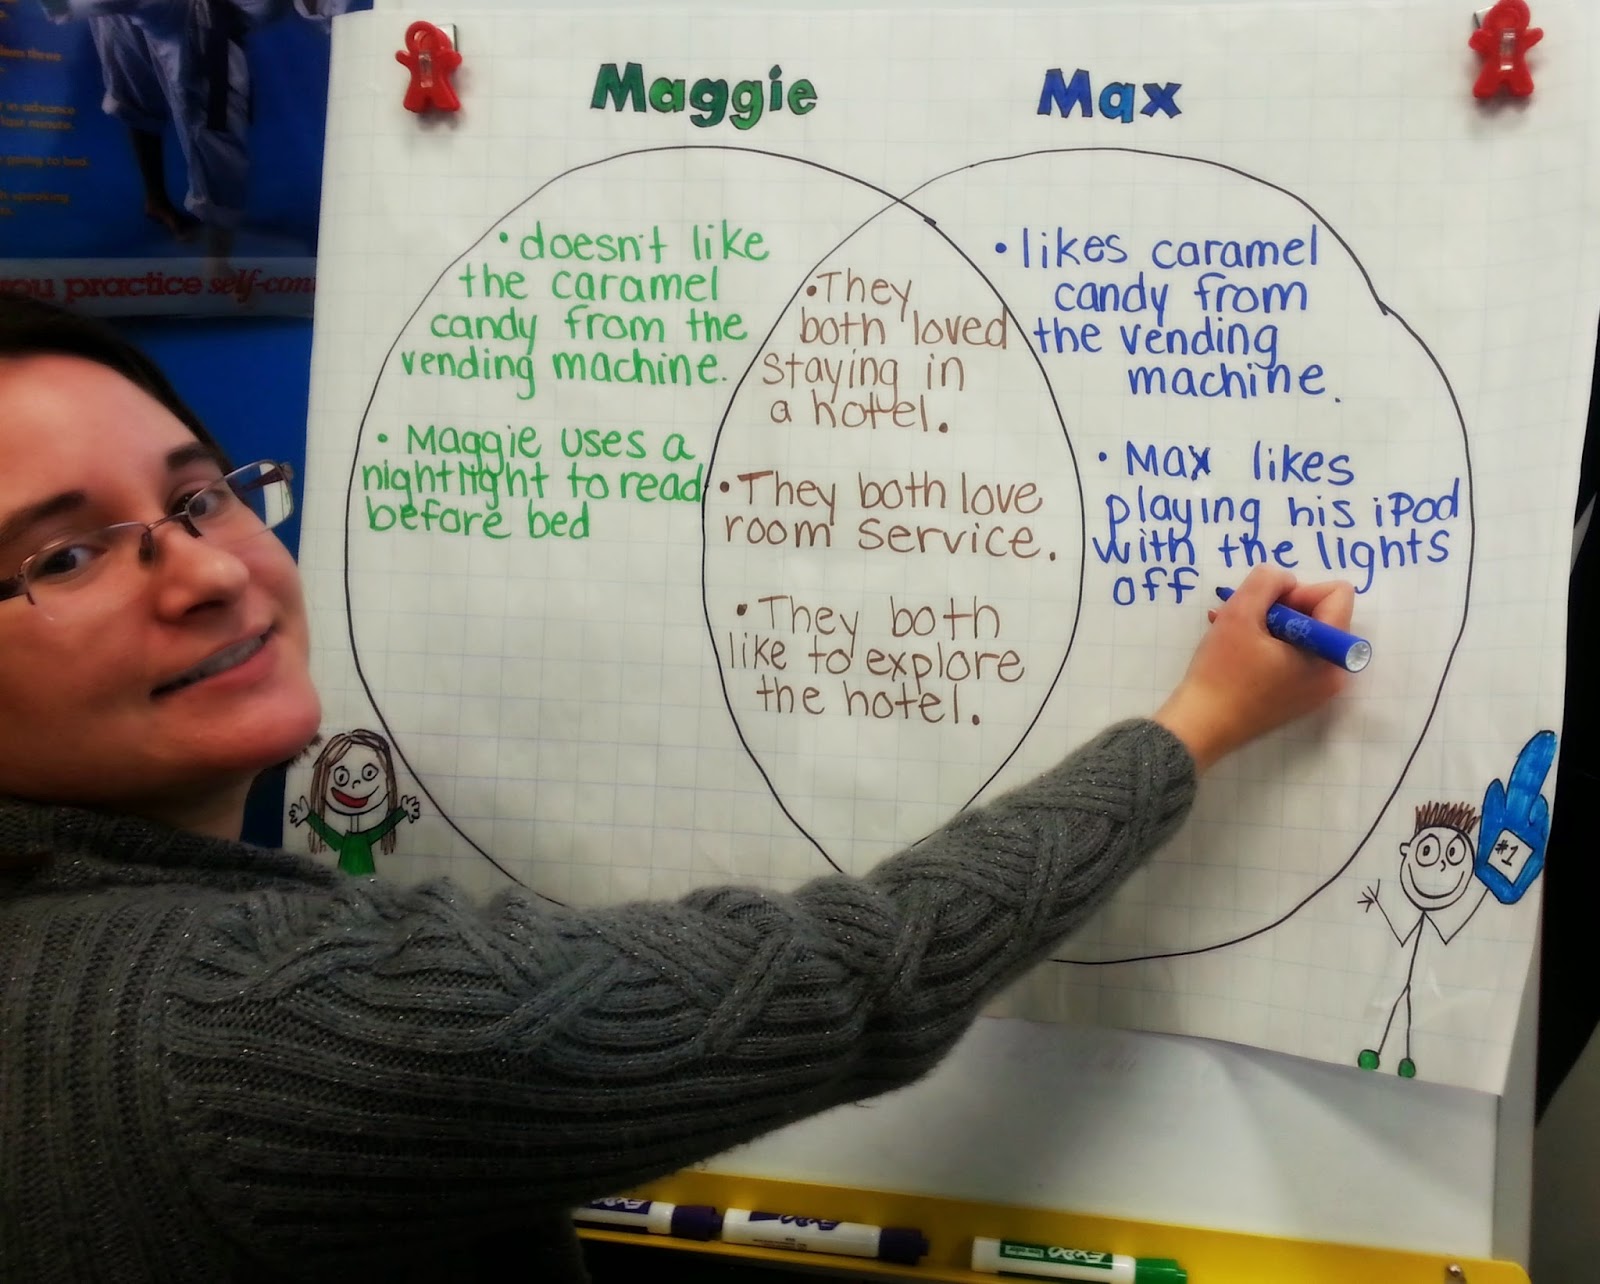 Maggie
Max
• doesn't like
the caramel
candy from the
vending machine.
• Maggie uses a
nightlight to read
before bed
• They
both loved
staying in
a hotel.
• They both love
room service.
• They both
like to explore
the hotel.
• likes caramel
candy from
the vending
machine.
• Max likes
playing his iPod
with the lights
off
#1
in advance
last minute.
going to bed.
speaking
you practice self-con
EXPO
EXPO
EXPO